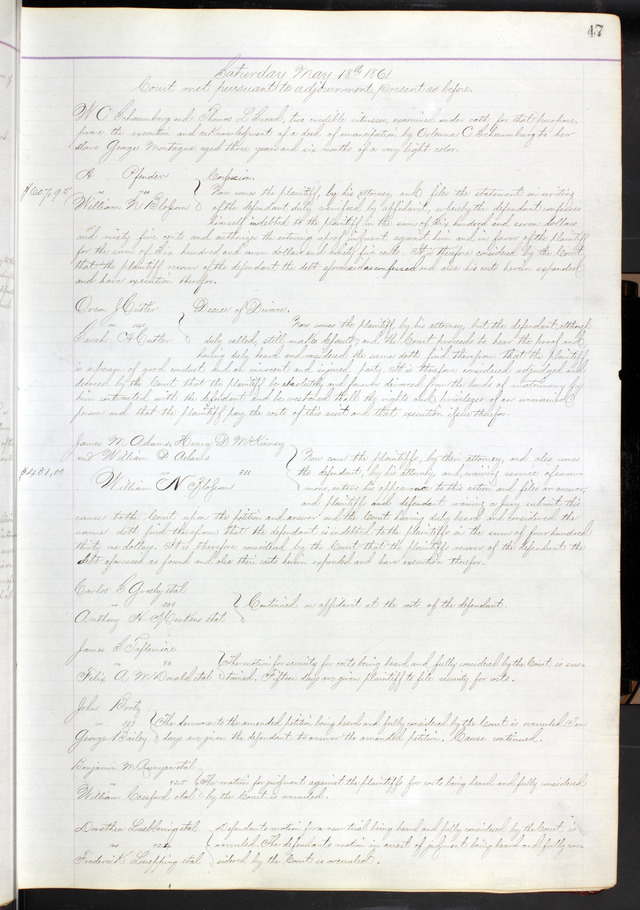 47
Saturday May 18th 1861
Court met pursuant to adjournment, present as before.
W C Schaumburg and Thomas L Snead, two credible witnesses, examined under oath, for that purpose,
prove the execution and acknowledgment of a deed of emancipation by Orleana C Schaumburg to her
slave George Montague aged three years and six months of a very light color.
A Pfender Confession.
$607,95 vs Now comes the plaintiff, by his attorney, and files the statement in writing
William N Glosson of the defendant duly verified by affidavit, whereby the defendant confesses
himself indebted to the plaintiff in the sum of Six hundred and seven dollars
and ninety five cents and authorizes the entering up of judgment against him and in favor of the plaintiff
for the sum of Six hundred and seven dollars and ninety five cents. It is therefore considered by the Court
that the plaintiff recover of the defendant the debt aforesaid as confessed and also his costs herein expended
and have execution therefor.
Oren J Cutler Decree of Divorce.
vs Now comes the plaintiff, by his attorney, but the defendant, although
Sarah A Cutler duly called, still makes default, and the Court proceeds to hear the proof and
having duly heard and considered the same doth find therefrom that the plaintiff
is a person of good conduct and an innocent and injured party. It is therefore considered adjudged and
decreed by the Court that the plaintiff be absolutely and forever divorced from the bonds of matrimony by
him contracted with the defendant and be restored to all the rights and privileges of an unmarried
person and that the plaintiff pay the costs of this suit and that execution issue therefor.
James M Adams, Henry D McKinney
and William D Adams Now come the plaintiffs, by their attorney, and also comes
$431,00 vs the defendant, by his attorney and, waiving service of summons,
William N Glosson enters his appearance to this action and files an answer,
and plaintiffs and defendant waiving a jury submit this
cause to the Court upon the petition and answer and the Court having duly heard and considered the
same doth find therefrom that the defendant is indebted to the plaintiffs in the sum of four hundred
thirty one dollars. It is therefore considered by the Court that the plaintiffs recover of the defendant the
debt aforesaid as found and also their costs herein expended and have execution therefor.
Carlos S Greeley et al
vs Continued on affidavit at the costs of the defendant.
Anthony H et al
James S
vs The motion for security for costs being heard, and fully considered by the Court is sus-
Felix A McDonald et al tained. Fifteen days are given plaintiff to file security for costs.
John
vs The demurrer to the amended petition being heard and fully considered by the Court is overruled. Ten
George Bailey days are given the defendant to answer the amended petition. Cause continued.
Benjamin M Runyan et al
vs The motion for judgment against the plaintiffs for costs being heard and fully considered
William et al by the Court is overruled.
Dorothea et al Defendants motion for a new trial being heard and fully considered by the Court, is
vs overruled. The defendants motion in arrest of judgment being heard and fully con-
Frederick et al sidered by the Court is overruled.